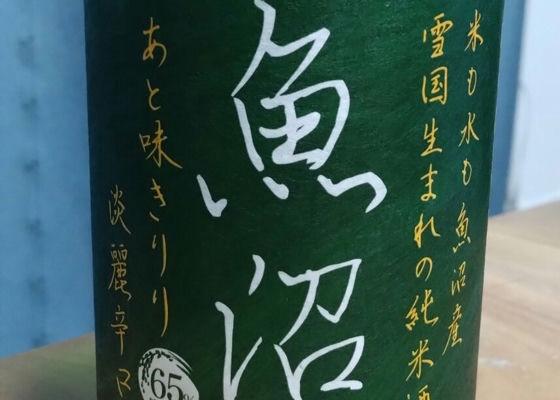 米も水も魚沼産
雪国生まれの純米酒
魚沼
あと味きりり
淡麗辛口
65%